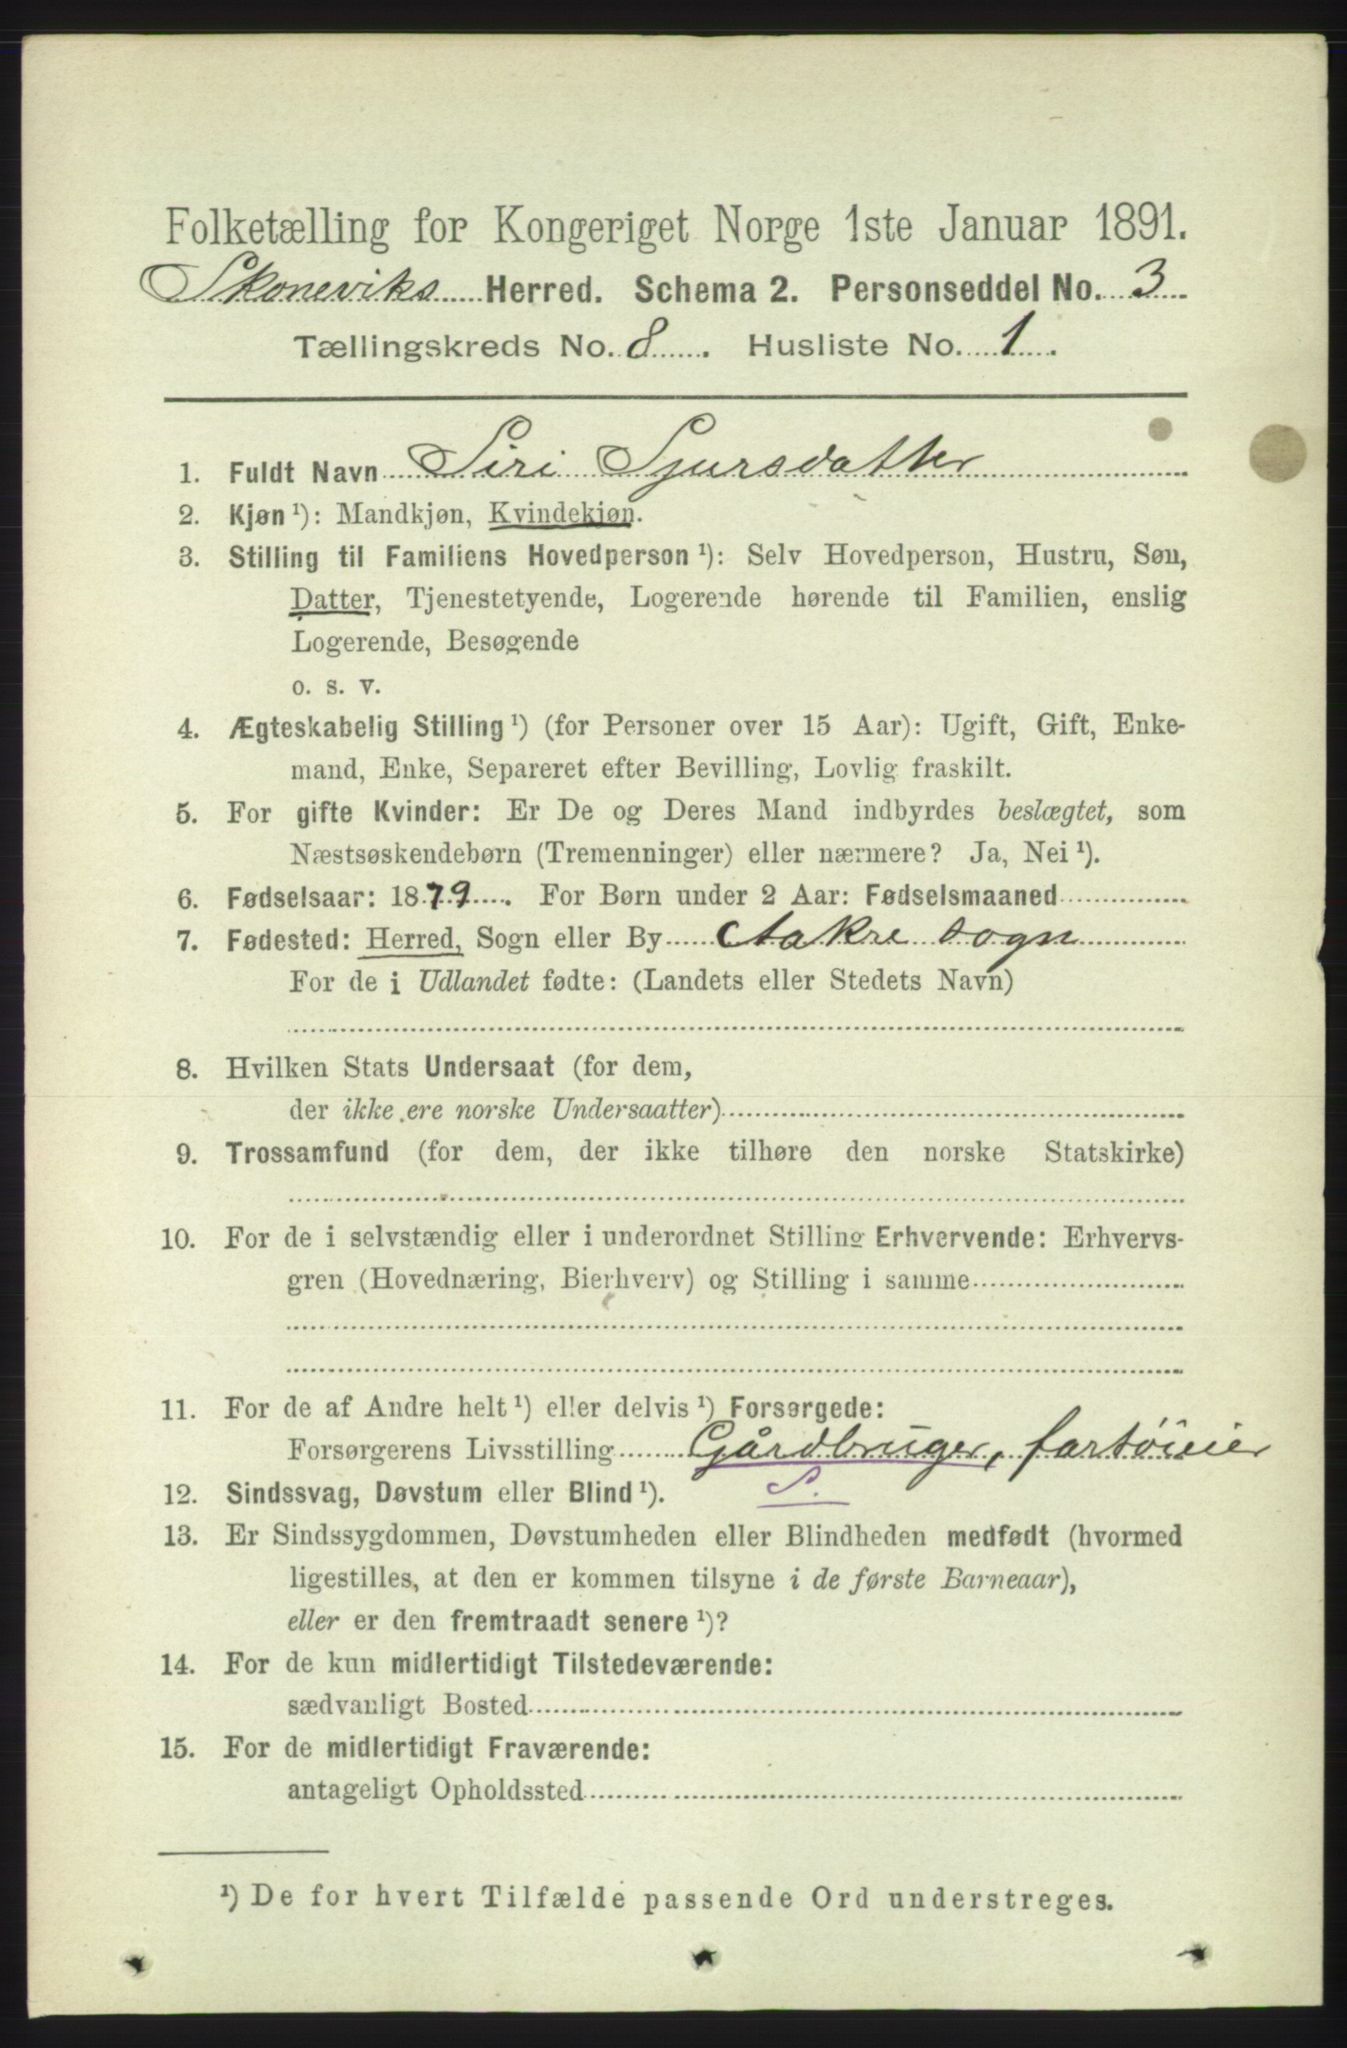 Folketælling for Kongeriget Norge 1ste Januar 1891.
Skoneviks Herred. Schema 2. Personseddel No. 3
Tællingskreds No. 8. Husliste No. 1.
1. Fuldt Navn Siri Sjursdatter
2. Kjøn ¹): Mandkjøn, Kvindekjøn.
3. Stilling til Familiens Hovedperson ¹): Selv Hovedperson, Hustru, Søn,
Datter, Tjenestetyende, Logerende hørende til Familien, enslig
Logerende, Besøgende
o. s. v.
4. Ægteskabelig Stilling ¹) (for Personer over 15 Aar): Ugift, Gift, Enke-
mand, Enke, Separeret efter Bevilling, Lovlig fraskilt.
5. For gifte Kvinder: Er De og Deres Mand indbyrdes beslægtet, som
Næstsøskendebørn (Tremenninger) eller nærmere? Ja, Nei ¹).
6. Fødselsaar: 1879. For Børn under 2 Aar: Fødselsmaaned
7. Fødested: Herred, Sogn eller By Aakre sogn
For de i Udlandet fødte: (Landets eller Stedets Navn)
8. Hvilken Stats Undersaat (for dem,
der ikke ere norske Undersaatter)
9. Trossamfund (for dem, der ikke tilhøre den norske Statskirke)
10. For de i selvstændig eller i underordnet Stilling Erhvervende: Erhvervs-
gren (Hovednæring, Bierhverv) og Stilling i samme
11. For de af Andre helt ¹) eller delvis ¹) Forsørgede:
Forsørgerens Livsstilling Gårdbruger, fartöieier
12. Sindssvag, Døvstum eller Blind ¹). S.
13. Er Sindssygdommen, Døvstumheden eller Blindheden medfødt (hvormed
ligestilles, at den er kommen tilsyne i de første Barneaar),
eller er den fremtraadt senere ¹)?
14. For de kun midlertidigt Tilstedeværende:
sædvanligt Bosted
15. For de midlertidigt Fraværende:
antageligt Opholdssted
¹) De for hvert Tilfælde passende Ord understreges.